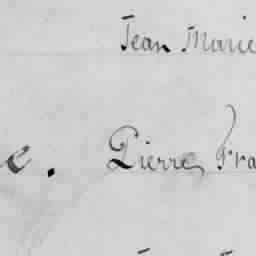 Jean Marie
e. Pierre, Fra